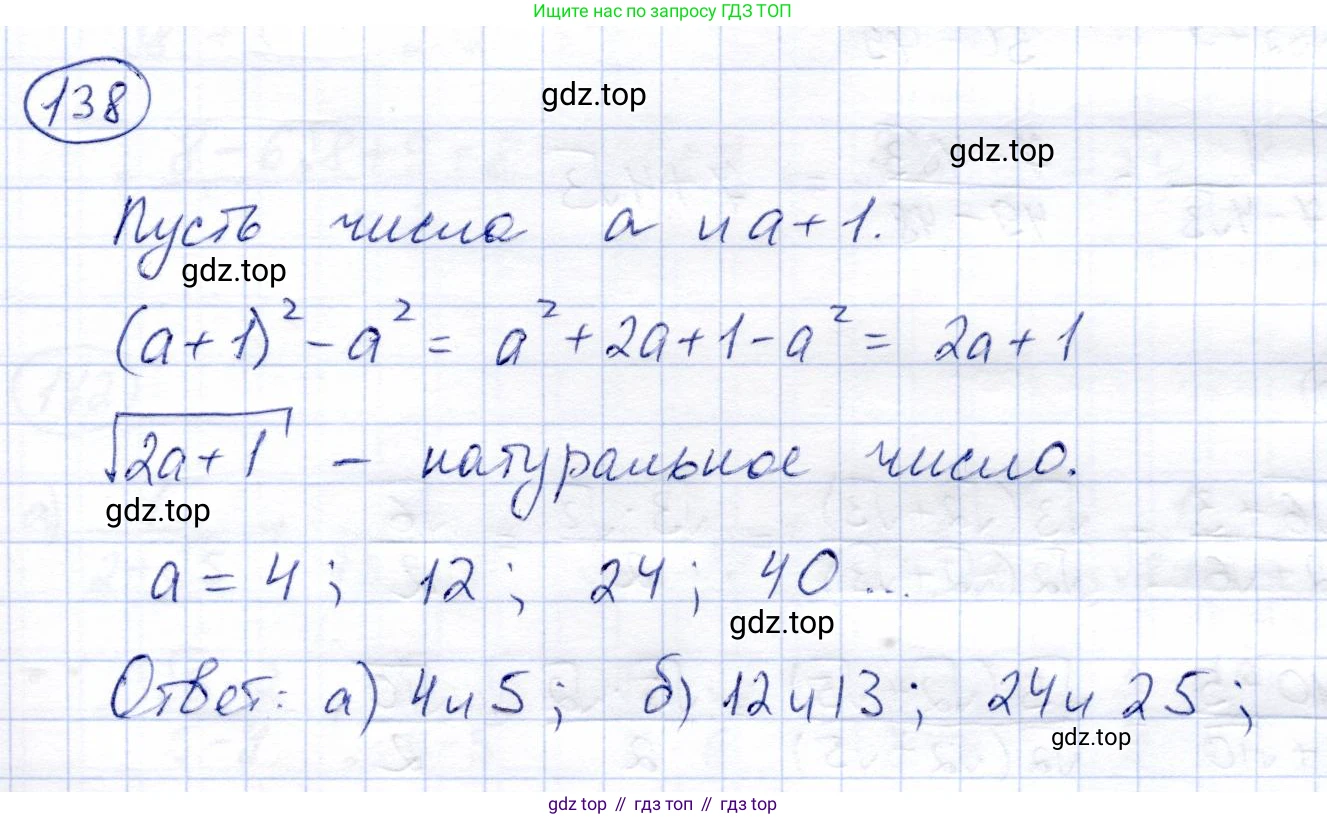 Ищите нас по запросу ГДЗ ТОП
138
gdz.top
gdz.top
Пусть числа a и a+1.
gdz.top
(a+1)² - a² = a² + 2a + 1 - a² = 2a + 1
√2a+1 - натуральное число.
gdz.top
a = 4; 12; 24; 40...
gdz.top
Ответ: а) 4 и 5; б) 12 и 13; 24 и 25;
gdz.top
gdz top // гдз топ // гдз top